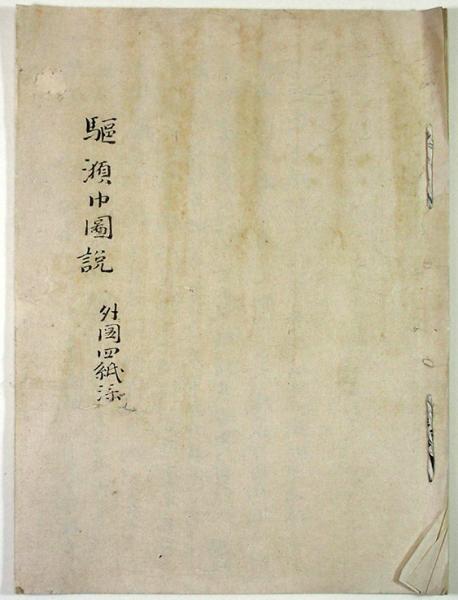 驅瀕巾圖説
外圖四紙添